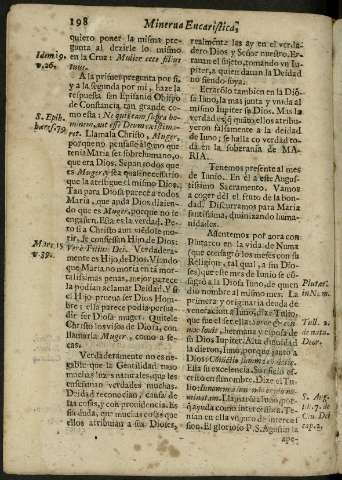 198
Minerva Eucaristica,
quiero poner la misma pre-
gunta al dezirle lo mismo
en la Cruz: Mulier ecce filius
tuus.
A la primer pregunta por si,
y a la segunda por mi, haze la
respuesta san Epifanio Obispo
de Constancia, tan grande co-
mo esta: Ne quis eam supra ho-
minem, aut esse Deum existima-
ret. Llamala Christo, Muger,
porque no pensasse alguno que
tenia Maria ser sobrehumano, o
que era Dios. Sepan todos que
es Muger, y sea qual necessario
que la atestigue el mismo Dios.
Tan para Dios parece a todos
Maria, que anda Dios diziendo
que es Muger, porque no se
engañen. Essa es la verdad. Pe-
ro si a Christo aun viendole mo-
rir, le confiessan Hijo de Dios:
Verè Filius Dei. Verdadera-
mente es Hijo de Dios. Viendo
que Maria no moria en si mor-
talissimas penas, mejor parece
la podian aclamar Deidad. Y si
el Hijo prueba ser Dios Hom-
bre; ella parece podia persua-
dir ser Diosa muger. Quitele
Christo los visos de Diosa, con
llamarla Muger, como a se-
cas.
Verdaderamente no es ne-
gable que la Gentilidad tuvo
muchas luzes naturales, que les
enseñaron verdades muchas.
Deidad reconocian, causa de
las cosas, y con providencia. Es
sin duda, que muchas cosas que
ellos atribuian a sus Dioses,
realmente las ay en el verda-
dero Dios y Señor nuestro. Er-
ravan el sujeto, tomando vn Iu-
piter, a quien davan la Deidad
no siendo suya.
Errarôlo tambien en la Dió-
sa Iuno, la mas junta y vnida al
mismo Iupiter su Dios. Mas la
verdad es, q̃ quãto ellos atribu-
yeron falsamente a la deidad
de Iuno, se halla cõ verdad to-
da en la soberania de MA-
RIA.
Tenemos presente al mes
de Iunio. En él a esse Augus-
tissimo Sacramento. Vamos
a coger del el fruto de la bon-
dad. Discurramos para Maria
santissima, divinizando huma-
nidades.
Assentemos por aora con
Plutarco en la vida de Numa
(que consagrò los meses con su
Religion, tal qual, a sus Dio-
ses) que este mes de Iunio se cõ-
sagrò a la Diosa Iuno, de quien
diò nombre al mismo mes. La
primera y originaria deuda de
veneracion a Iuno, dize Tulio,
que fue el ser ella: Soror &amp; con-
iux Iovis, hermana y esposa de
su Dios Iupiter. Alta dignidad
la dieron, Iuno, porque junto a
Dios: 
Ella su excelencia. Su oficio es-
crito en su nombre. Dize el Tu-
lio: 
minatam. Llamarõla Iuno, por-
q̃ ayuda como intercessora. Te-
nian en ella vn juro de interces-
sion. El glorioso P.S. Agustin la
ape-
Idem 19.
v. 26.
S. Epih.
hæres. 79.
Marc. 15.
v. 39.
Plutar.
in Num.
Tull. 2.
de nata.
Deor.
S. Aug.
lib. 7. de
Civ. Dei
cap. 3.